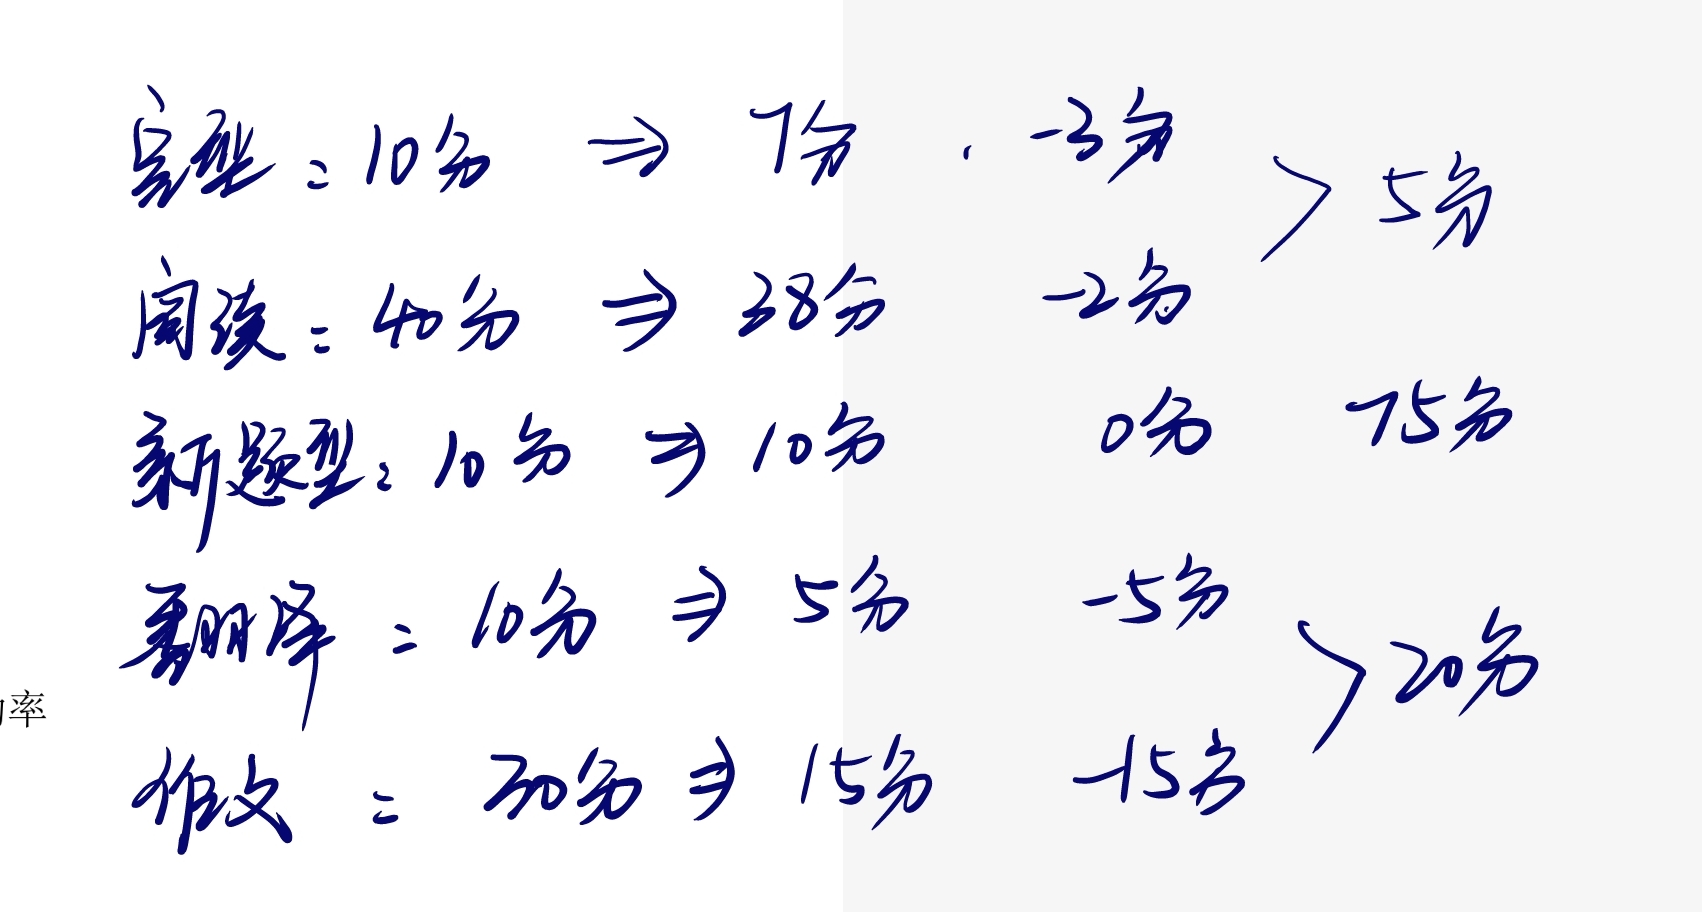 完型：10分 ⇒ 7分 . -3分
> 5分
阅读：40分 ⇒ 38分 -2分
新题型：10分 ⇒ 10分 0分 75分
翻译：10分 ⇒ 5分 -5分
率
> 20分
作文：30分 ⇒ 15分 -15分